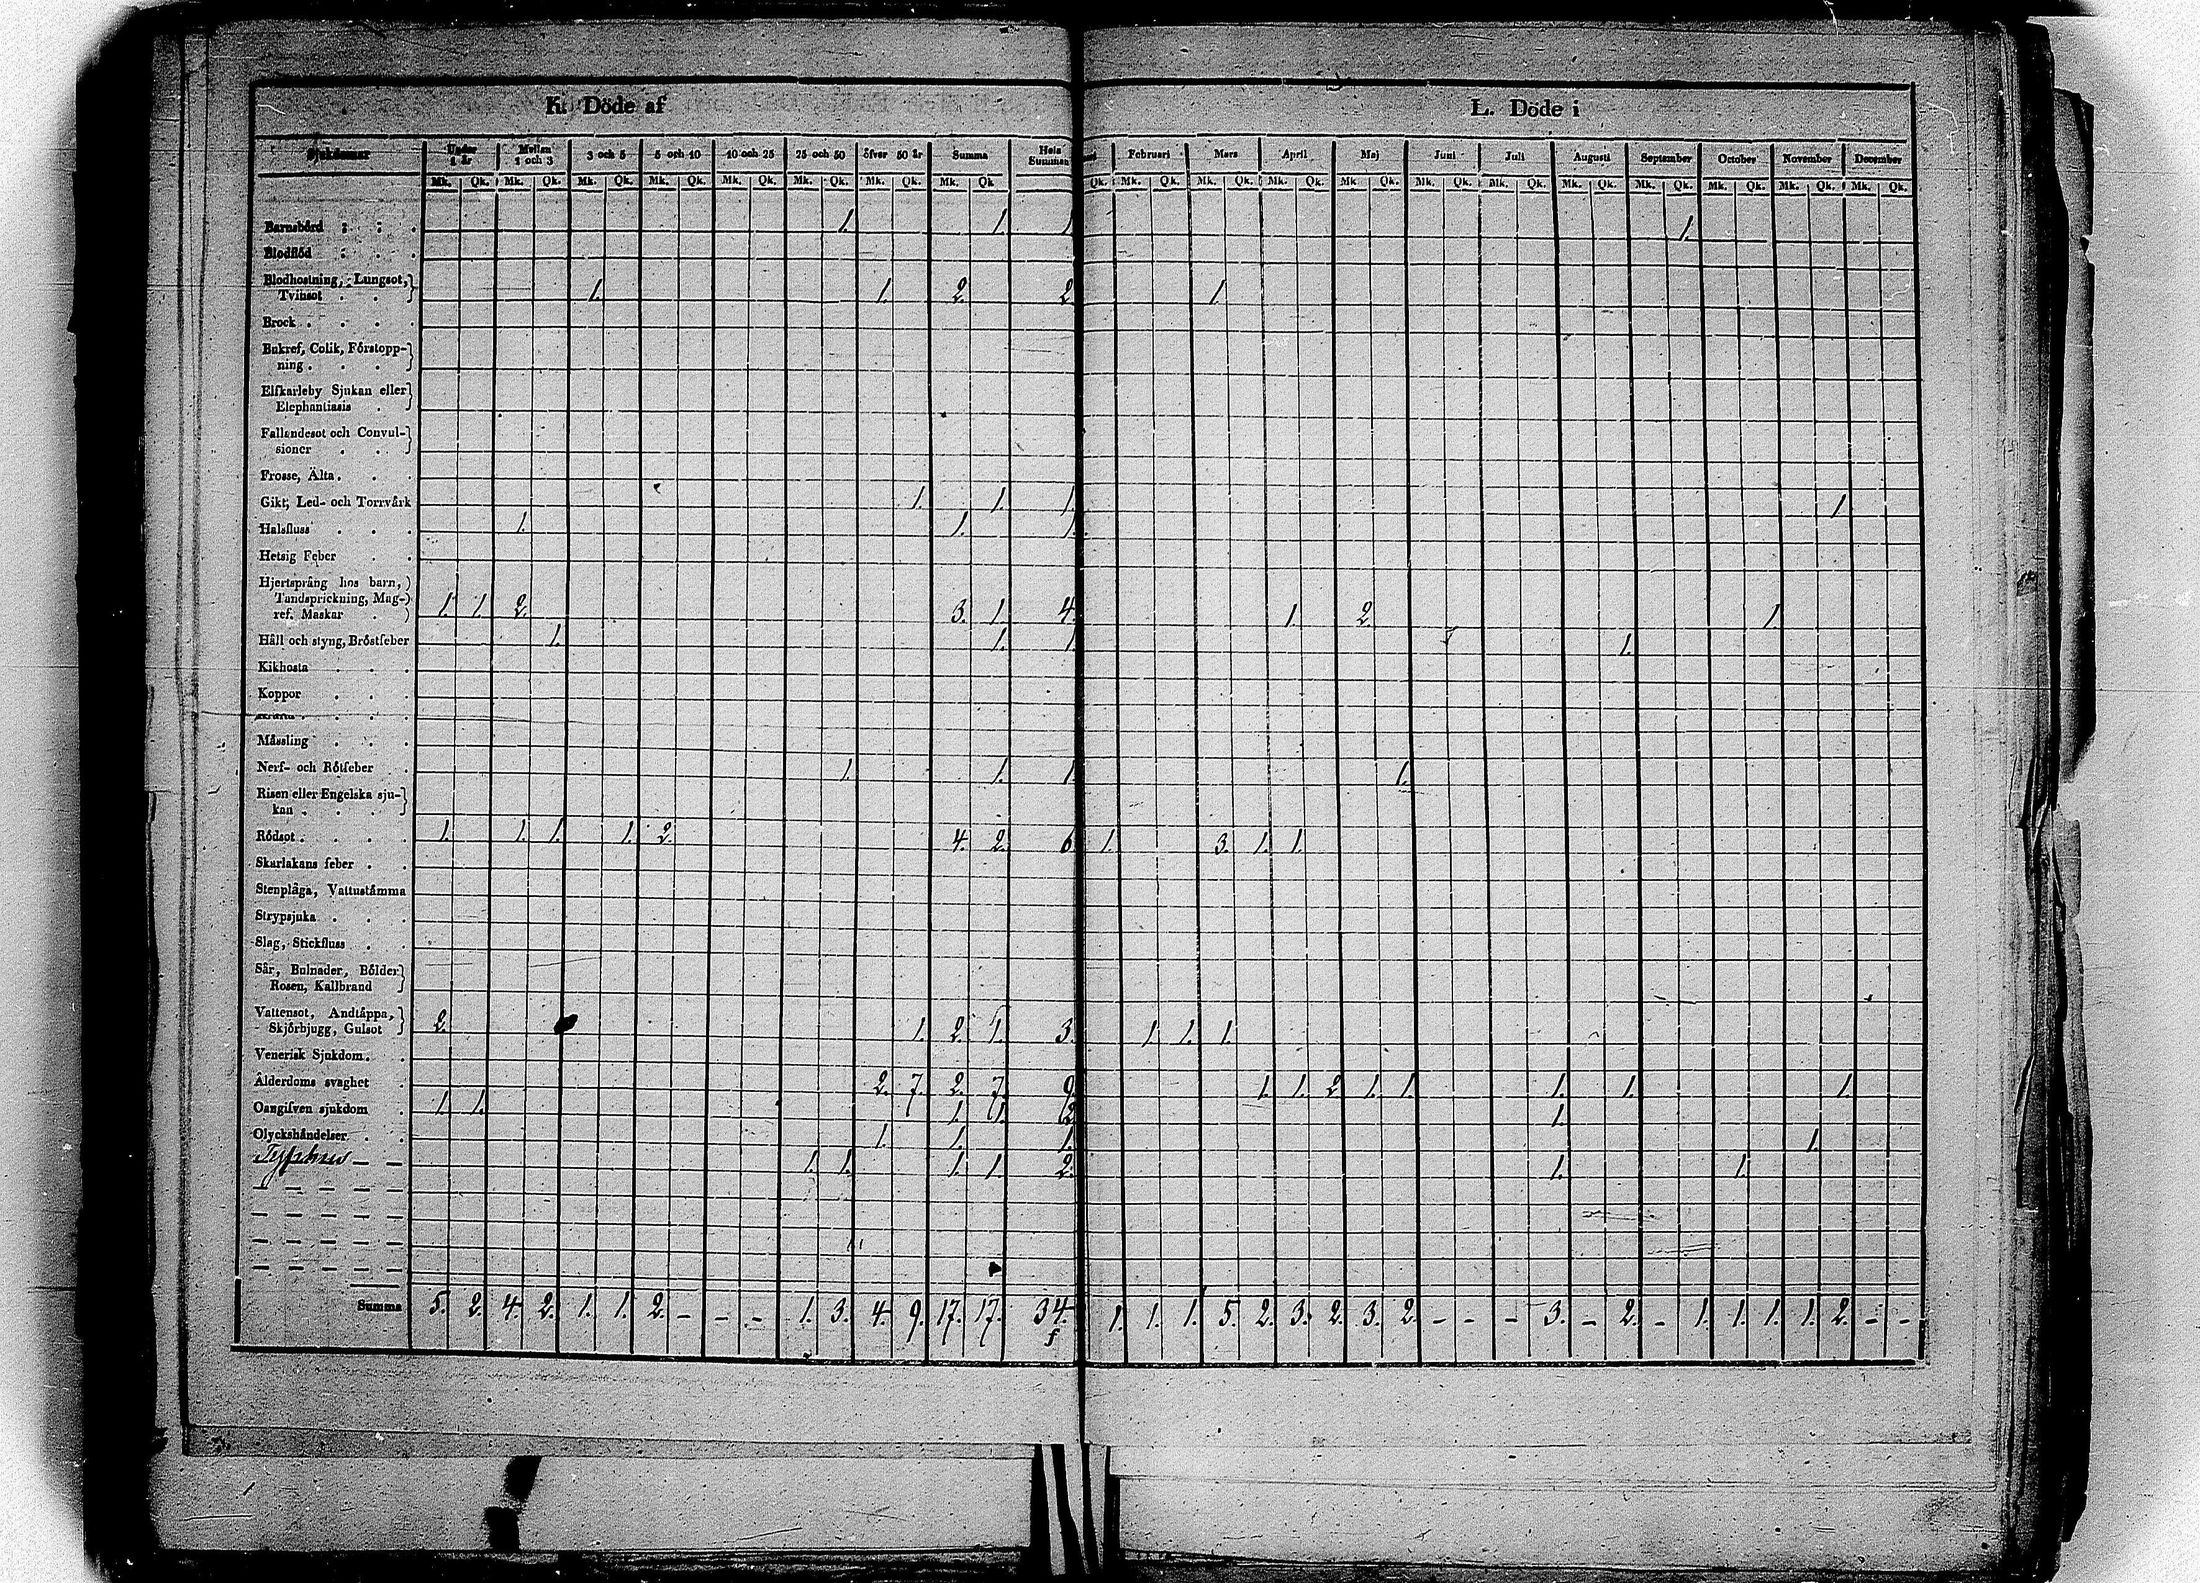 K. Döde af
L. Döde i
Sjukdomar Under 1 år Mellan 1 och 3 3 och 5 5 och 10 10 och 25 25 och 50 öfver 50 år Summa Hela Summan Februari Mars April Maj Juni Juli Augusti September October November December
Mk. Qk. Mk. Qk. Mk. Qk. Mk. Qk. Mk. Qk. Mk. Qk. Mk. Qk. Mk. Qk Qk. Mk. Qk. Mk. Qk. Mk. Qk. Mk Qk. Mk. Qk. Mk. Qk. Mk. Qk. Mk. Qk. Mk. Qk. Mk. Qk. Mk. Qk.
Barnsbörd 1. 1. 1 1.
Blodflöd
Blodhostning, Lungsot,
Tvinsot 1. 1. 2. 2 1.
Brock
Bukref, Colik, Förstopp-
ning
Elfkarleby Sjukan eller
Elephantiasis
Fallandesot och Convul-
sioner
Frosse, Älta
Gikt, Led- och Torrvärk 1. 1. 1. 1.
Halsfluss 1. 1. 1.
Hetsig Feber
Hjertsprång hos barn,
Tandsprickning, Mag-
ref. Maskar 1. 1. 2. 3. 1. 4. 1. 2. 1.
Håll och styng, Bröstfeber 1. 1. 1 1.
Kikhosta
Koppor
Mässling
Nerf- och Rötfeber 1. 1. 1. 1.
Risen eller Engelska sju-
kan
Rödsot 1. 1. 1. 1. 2. 4. 2. 6 1. 3. 1. 1.
Skarlakans feber
Stenplåga, Vattustämma
Strypsjuka
Slag, Stickfluss
Sår, Bulnader, Bölder
Rosen, Kallbrand
Vattensot, Andtäppa,
Skjörbjugg, Gulsot 2. 1. 2. 1. 3. 1. 1. 1.
Venerisk Sjukdom
Ålderdoms svaghet 2. 7. 2. 7. 9 1. 1. 2 1. 1. 1. 1. 1.
Oangifven sjukdom 1. 1. 1. 1. 2 1.
Olyckshändelser 1. 1. 1. 1.
Typhus — — 1. 1. 1. 1. 2. 1. 1.
Summa 5. 2. 4. 2. 1. 1. 2. – – – 1. 3. 4. 9. 17. 17. 34. 1. 1. 1. 5. 2. 3. 2. 3. 2. – – – 3. – 2. – 1. 1. 1. 1. 2. – –